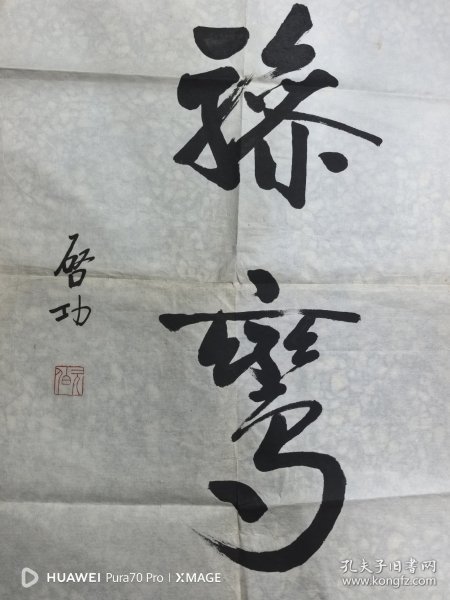 驂鸞
啓功
HUAWEI Pura70 Pro | XMAGE
孔夫子旧书网
www.kongfz.com